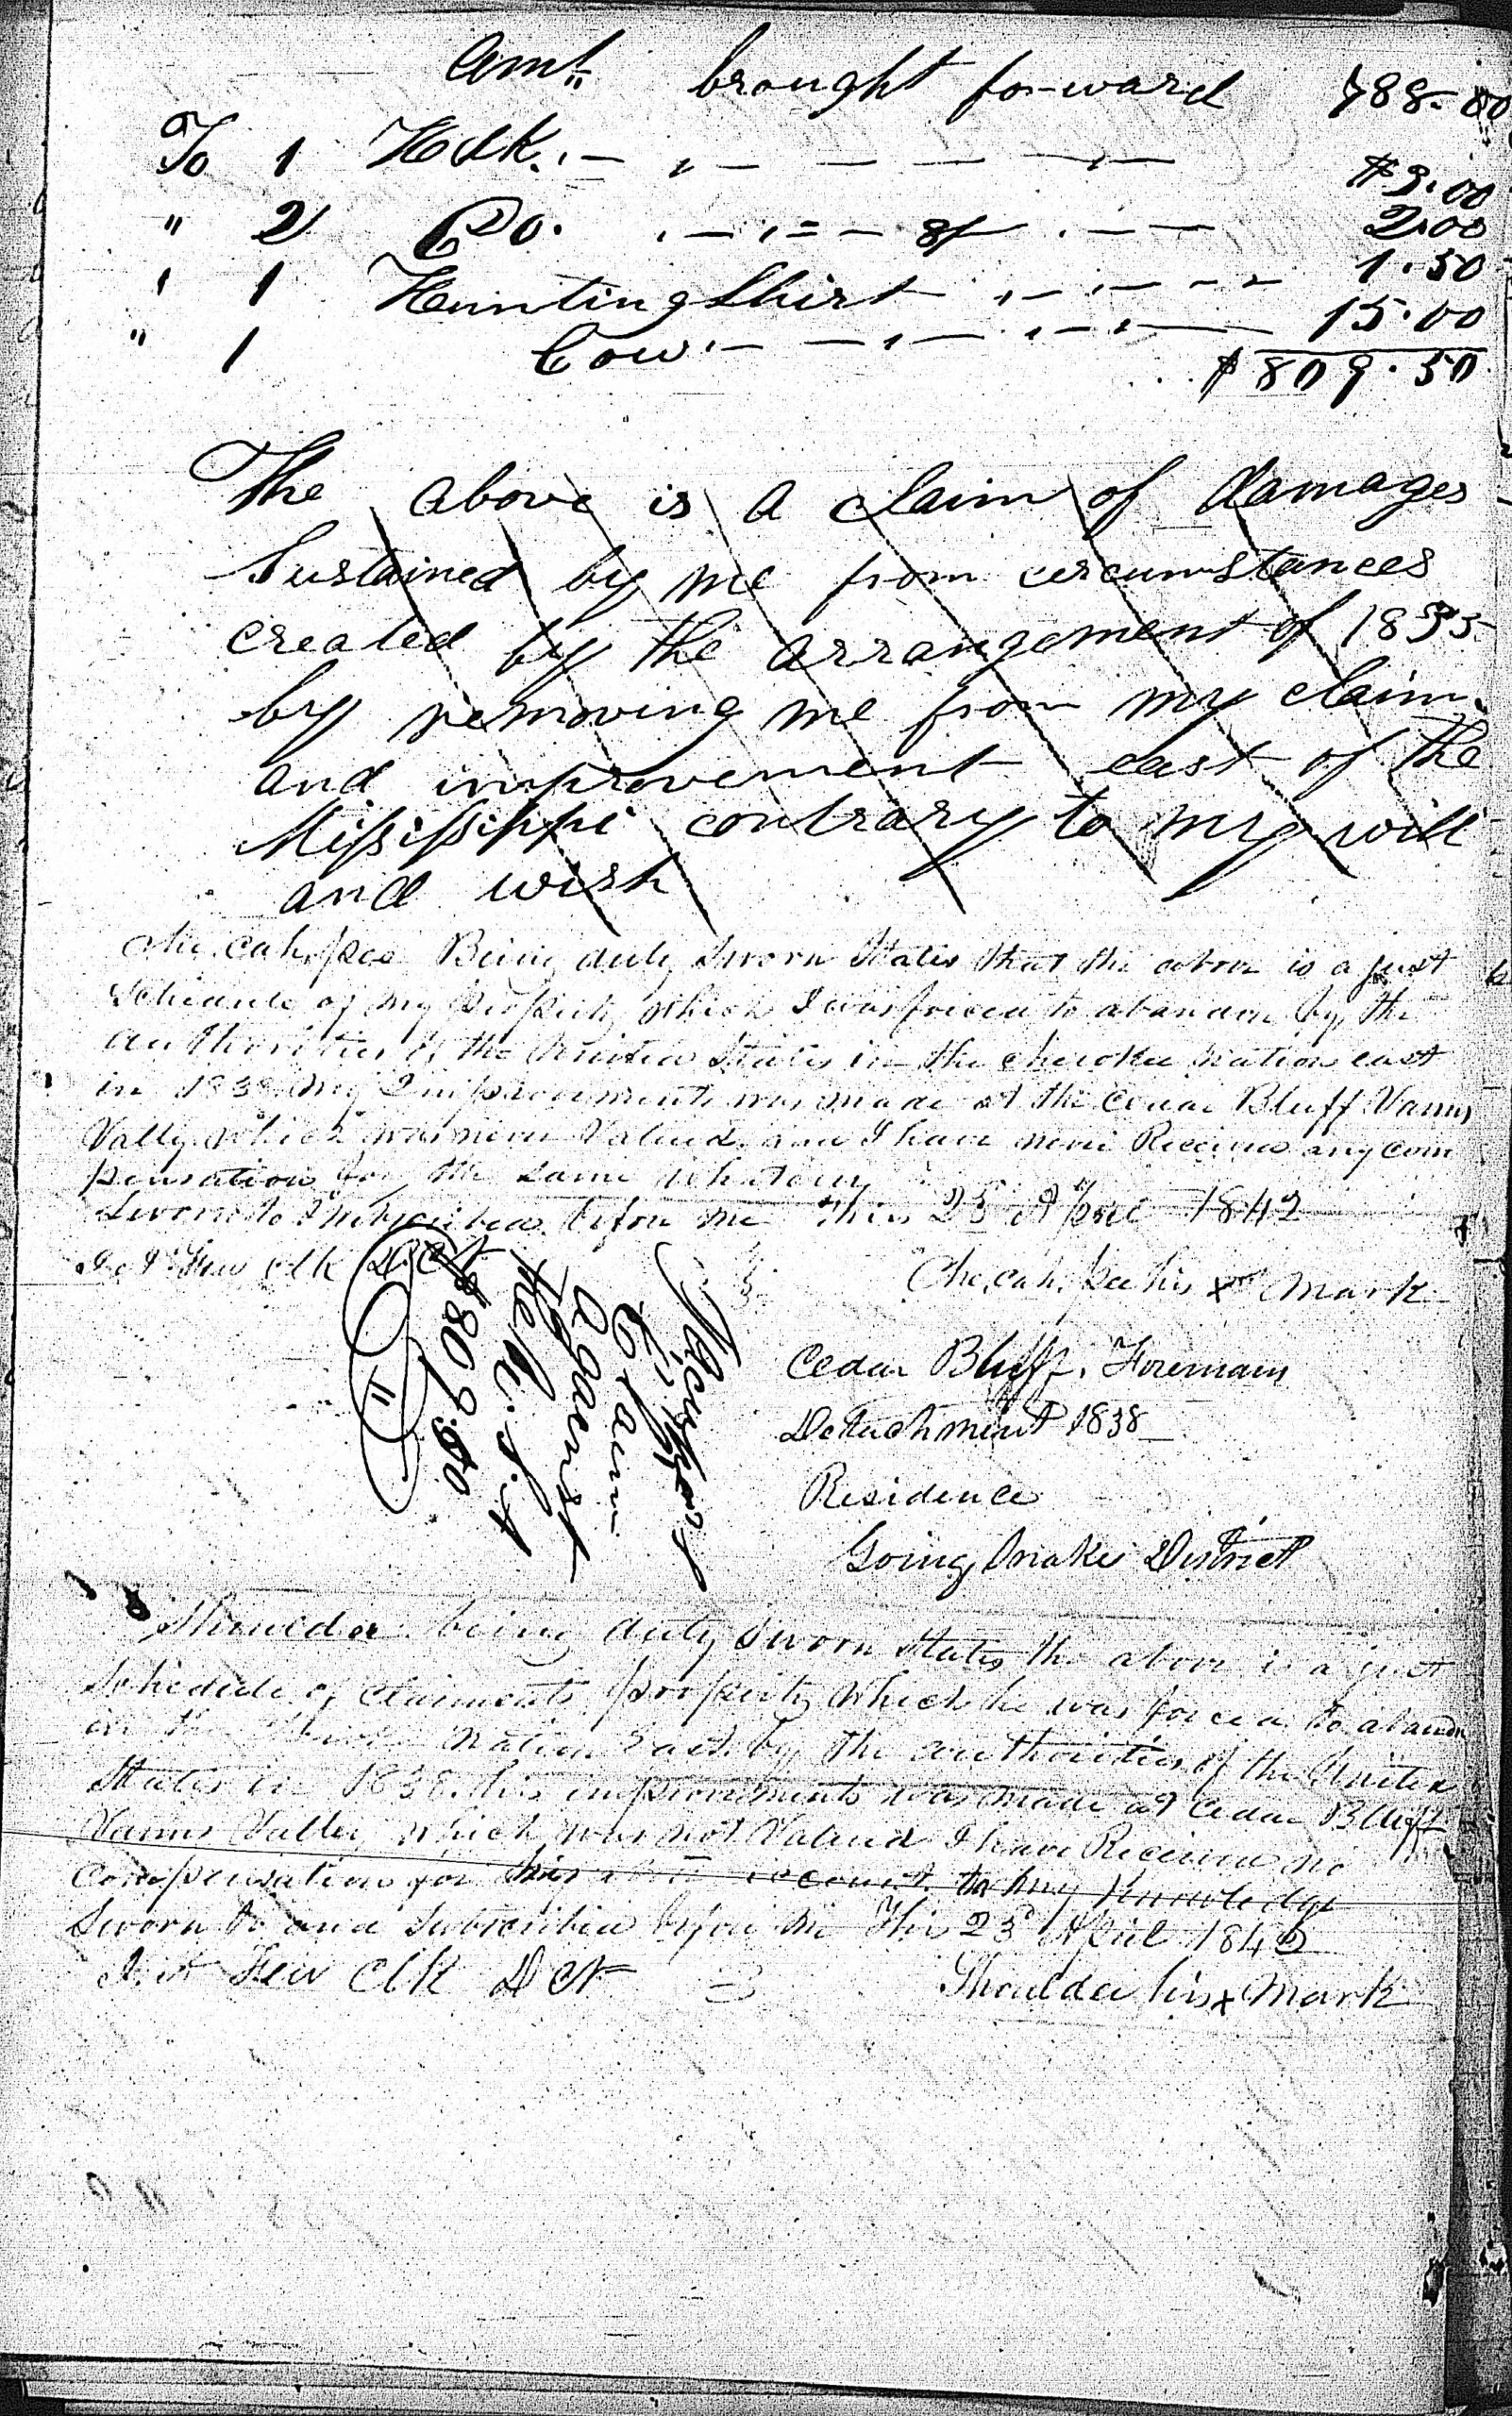 Amt brought forward 788.00
To 1 Hdk. $3.00
" 2 Do. 8/ 2.00
" 1 Hunting Shirt 1.50
" 1 Cow 15.00
$809.50
The above is a claim of damages
Sustained by me from cercumstances
created by the arrangement of 1835
by removing me from my claim
and improvement east of the
Missisippi contrary to my will
and wish
Che.cah.pee Being duly Sworn States that the above is a just
Schedule of my property which I was forced to abandon by the
authorities of the United States in the Cherokee Nation east
in 1838 my improvements was made at the Cedar Bluff Vanns
Vally which was never Valued and I have never Received any com
pensation for the same whatever
Sworn to & subscribed before me this 23 April 1842
Few Clk
Che.cah.pee his x mark
Claim
against
the U.S.
$809.50
Cedar Bluff. Foremans
Detachment 1838
Residence
Going Snake District
Shoulder being duly Sworn States the above is a just
Schedule of Claimants property which he was forced to abandon
in the Nation East by the authorities of the United
States in 1838. his improvements was made at Cedar Bluff
Vanns Valley which was not Valued I have Received no
Compensation for this account to my Knowledge
Sworn to and Subscribed before me this 23d April 1842
Few Clk D Ct
Shoulder his x mark